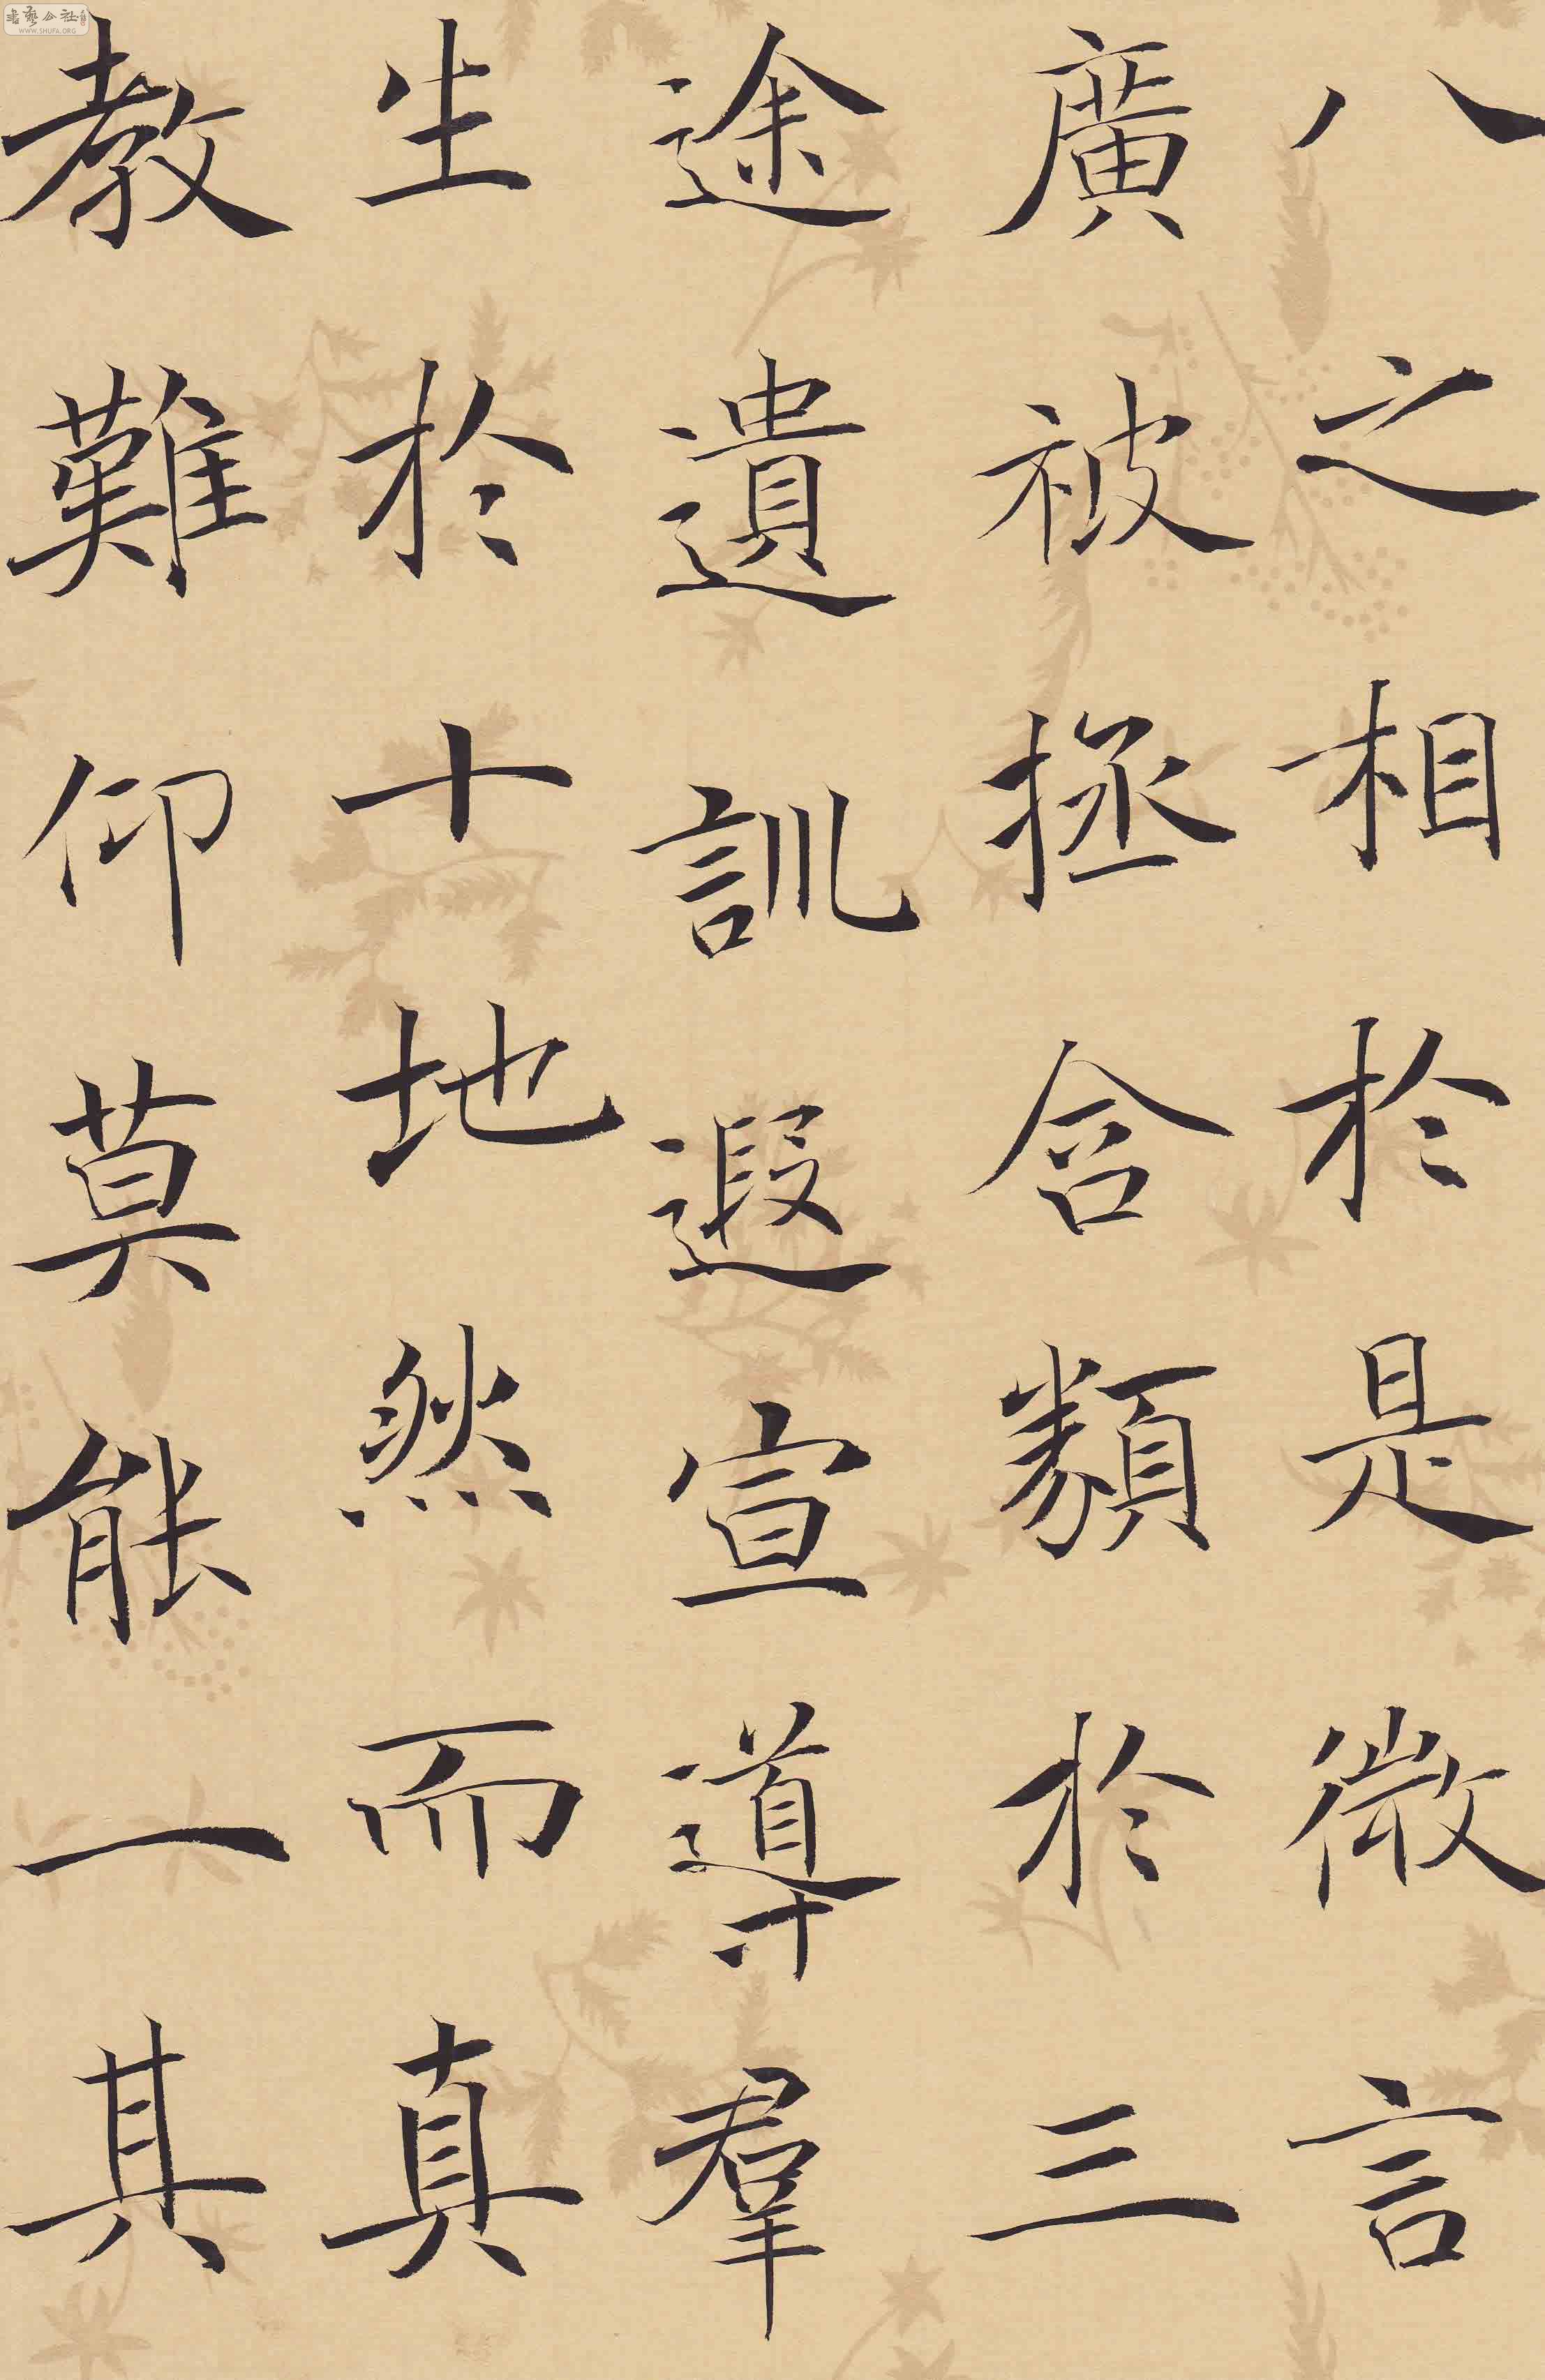 八之相於是微言
廣被拯含類於三
途遺訓遐宣導羣
生於十地然而真
教難仰莫能一其
書藝公社
WWW.SHUFA.ORG